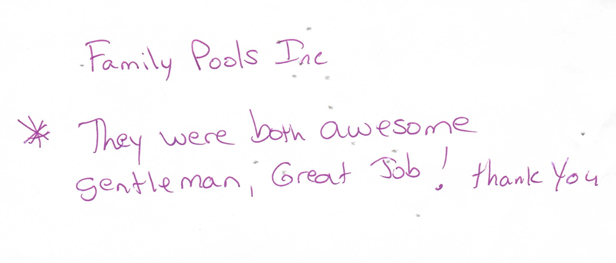 Family Pools Inc
* They were both awesome
gentleman, Great Job! thank you